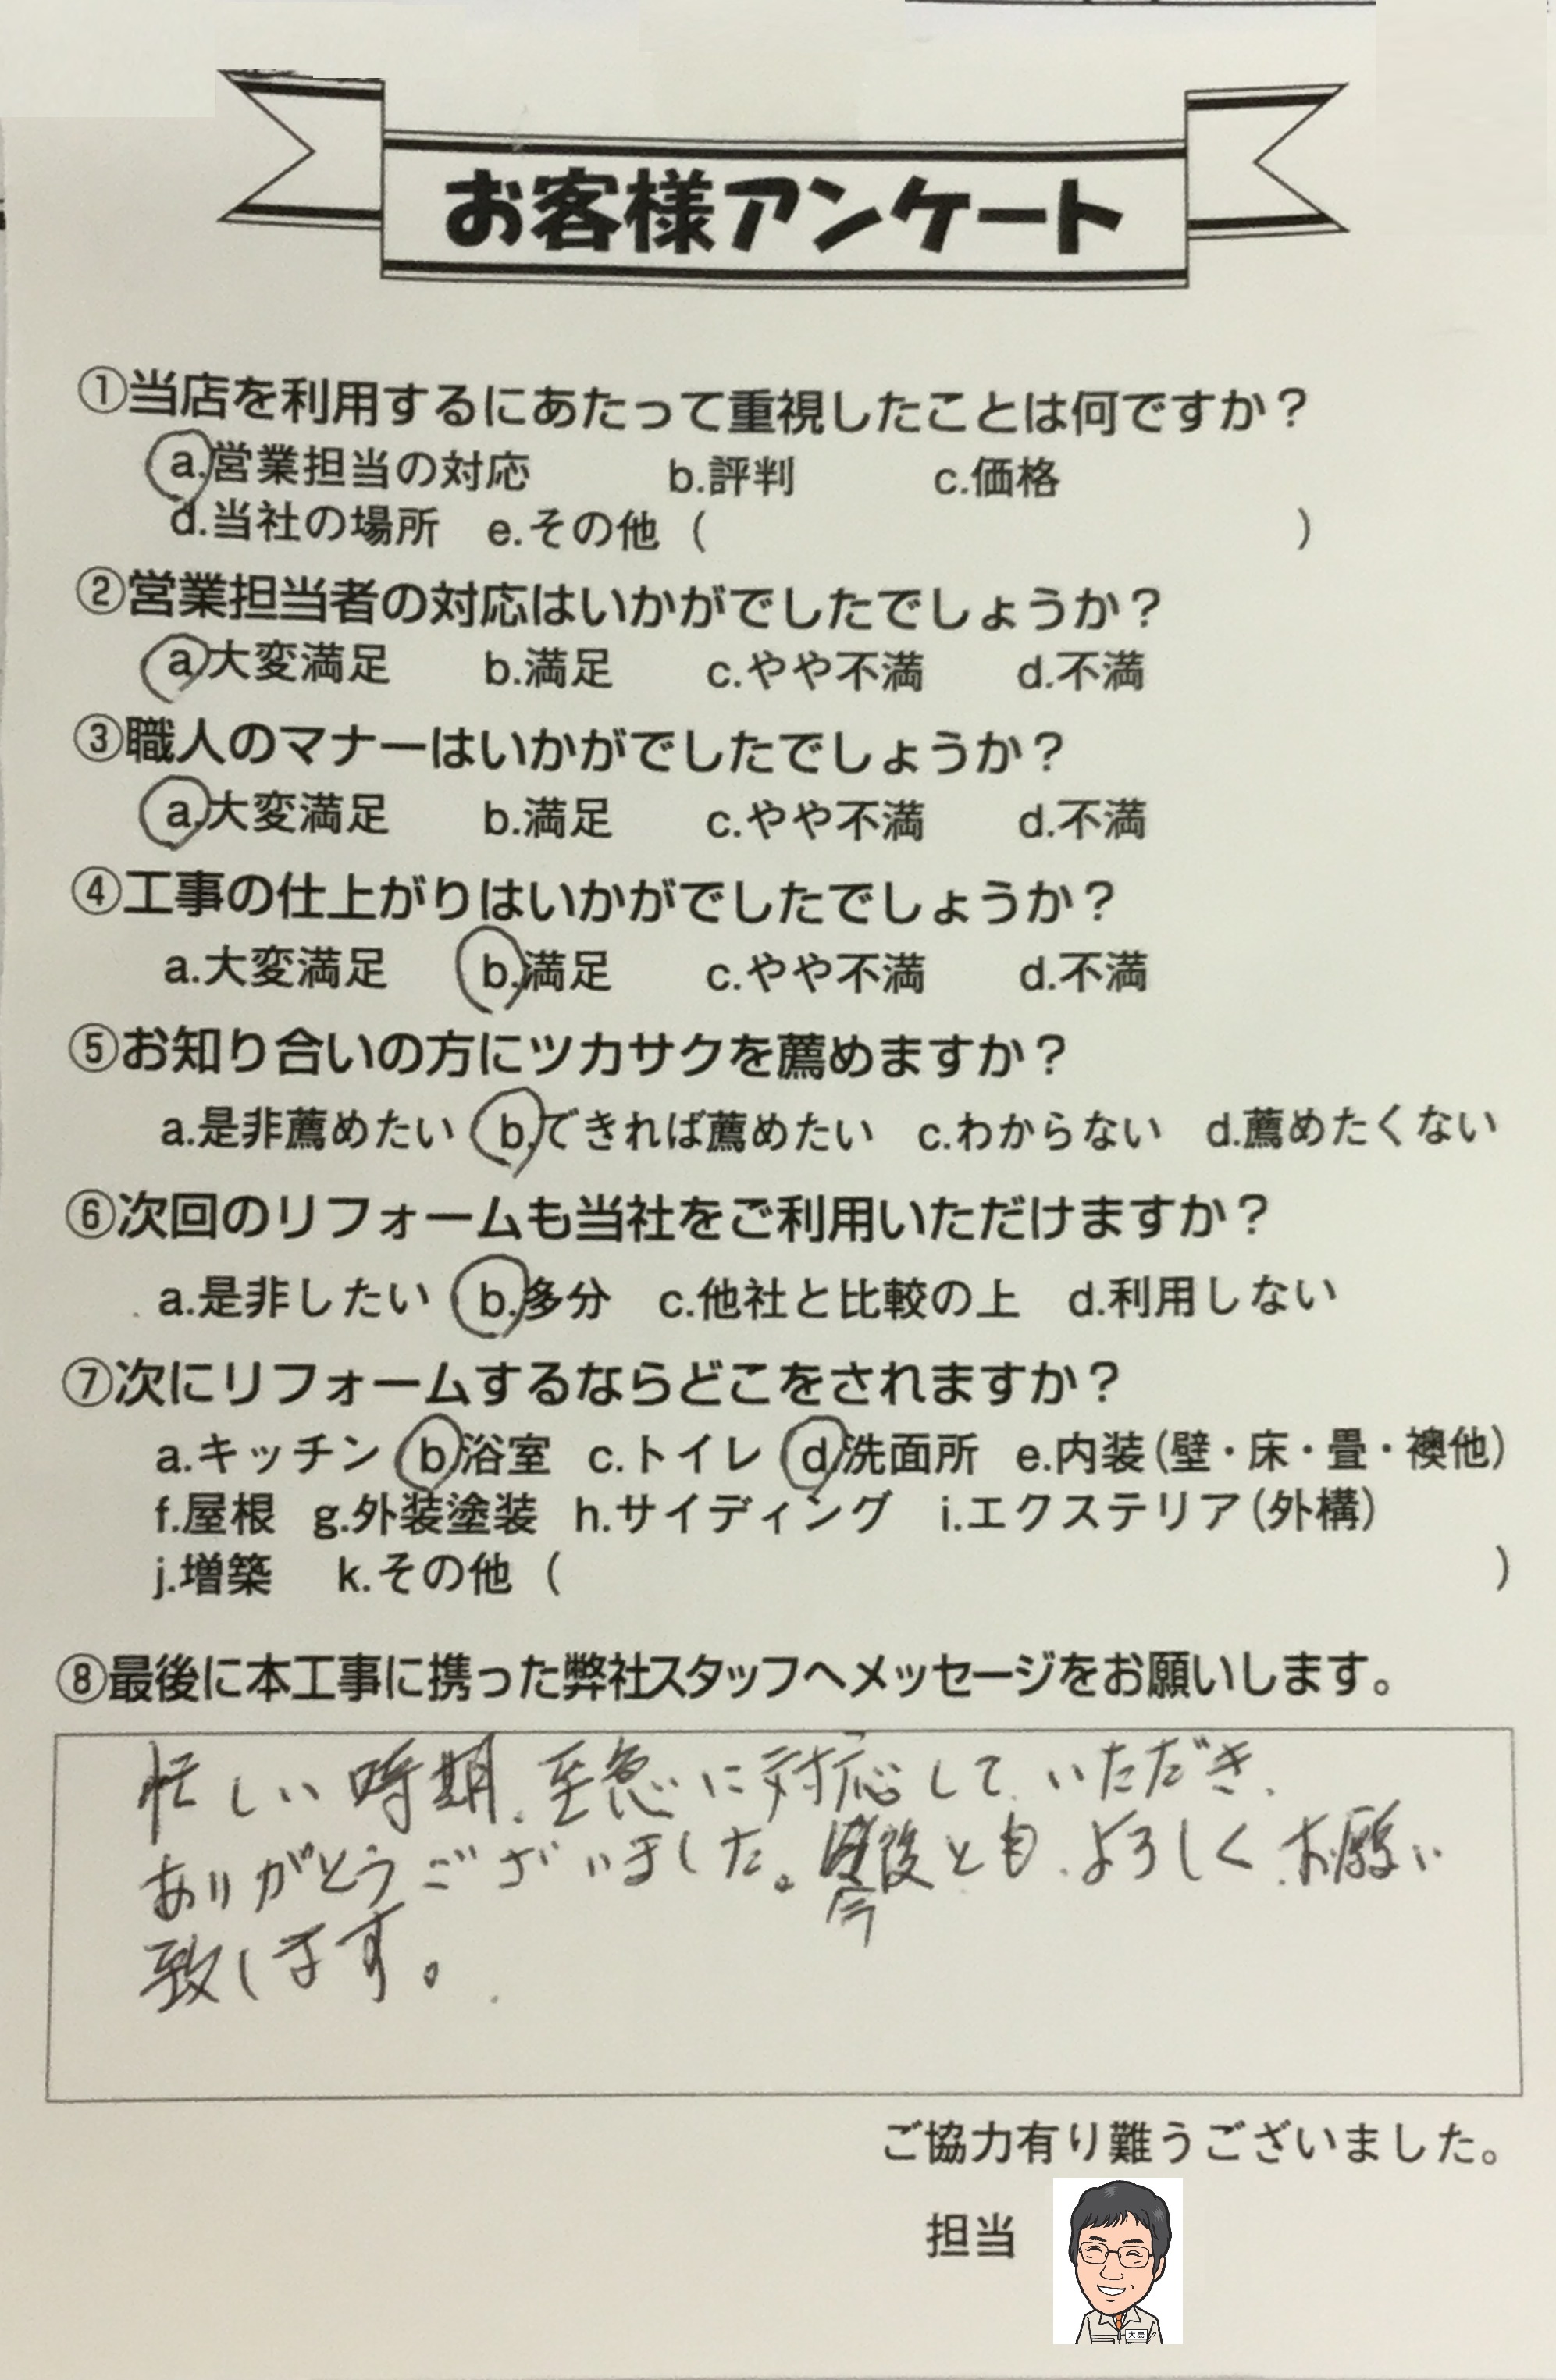 お客様アンケート
①当店を利用するにあたって重視したことは何ですか？
a.営業担当の対応 b.評判 c.価格
d.当社の場所 e.その他（ ）
②営業担当者の対応はいかがでしたでしょうか？
a.大変満足 b.満足 c.やや不満 d.不満
③職人のマナーはいかがでしたでしょうか？
a.大変満足 b.満足 c.やや不満 d.不満
④工事の仕上がりはいかがでしたでしょうか？
a.大変満足 b.満足 c.やや不満 d.不満
⑤お知り合いの方にツカサクを薦めますか？
a.是非薦めたい b.できれば薦めたい c.わからない d.薦めたくない
⑥次回のリフォームも当社をご利用いただけますか？
a.是非したい b.多分 c.他社と比較の上 d.利用しない
⑦次にリフォームするならどこをされますか？
a.キッチン b.浴室 c.トイレ d.洗面所 e.内装(壁・床・畳・襖他)
f.屋根 g.外装塗装 h.サイディング i.エクステリア(外構)
j.増築 k.その他（ ）
⑧最後に本工事に携った弊社スタッフへメッセージをお願いします。
忙しい時期、至急に対応していただき、
ありがとうございました。今後とも、よろしくお願い
致します。
ご協力有り難うございました。
担当